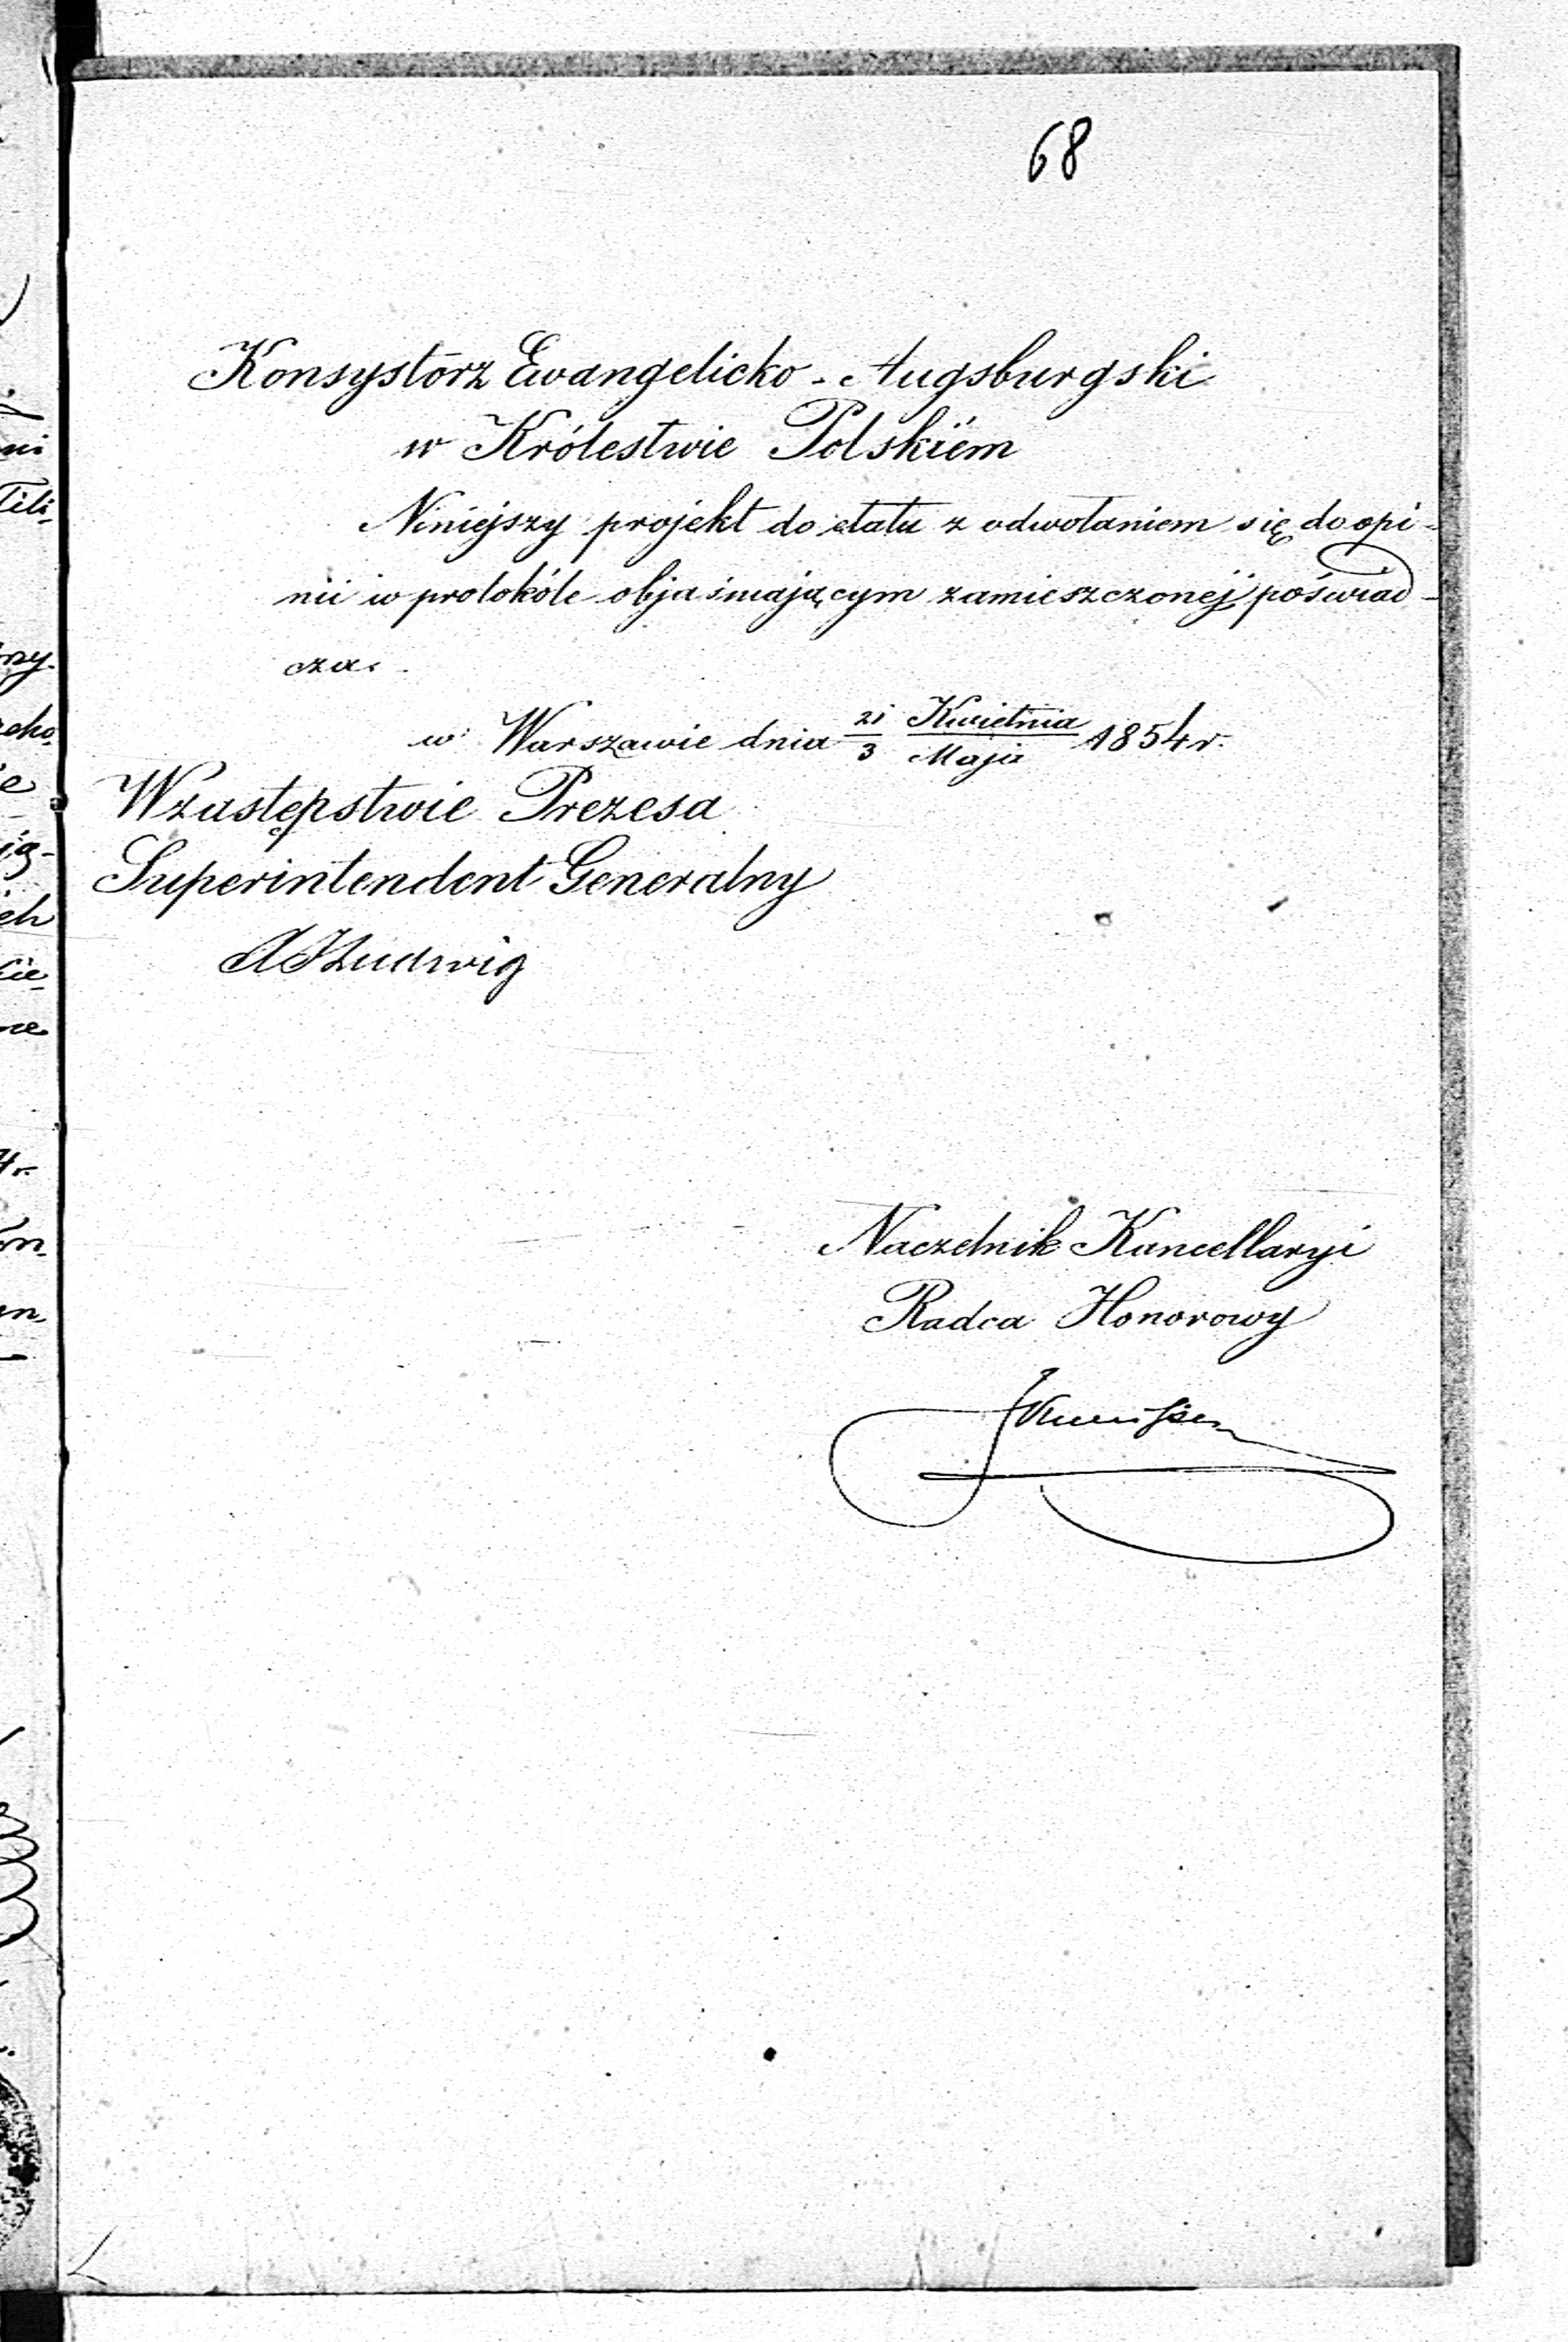 68
Konsystorz Ewangelicko - Augsburgski
w Królestwie Polskiém
Niniejszy projekt do etatu z odwołaniem się do opi-
nii w protokóle objaśniającym zamieszczonej, poświad-
cza.
w Warszawie dnia 21/3 Kwietnia/Maja 1854 r.
W zastępstwie Prezesa
Superintendent Generalny
Ludwig
Naczelnik Kancellaryi
Radca Honorowy